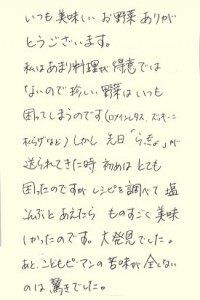 いつも美味しいお野菜ありが
とうございます。
私はあまり料理が得意では
ないので珍しい野菜はいつも
困ってしまうのです。(ロメインレタス、ズッキーニ
など) しかし先日「らっきょ」が
送られてきた時 初めはとても
困ったのですがレシピを調べて 塩
こんぶと あえたら ものすごく美味
しかったのです。大発見でした。
あと、こどもピーマンの苦味が全くない
のは 驚きでした。